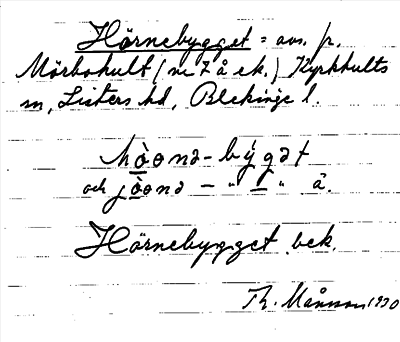 Hörnebygget = avs. p.
Mörbohult (nr 7 å ek.) Kyrkhults
sn, Listers hd, Blekinge l.
hò̱ɵnə-býgət
och jò̱ɵnə – " 1 " å.
Hörnebygget bek.
Th. Månsson 1930